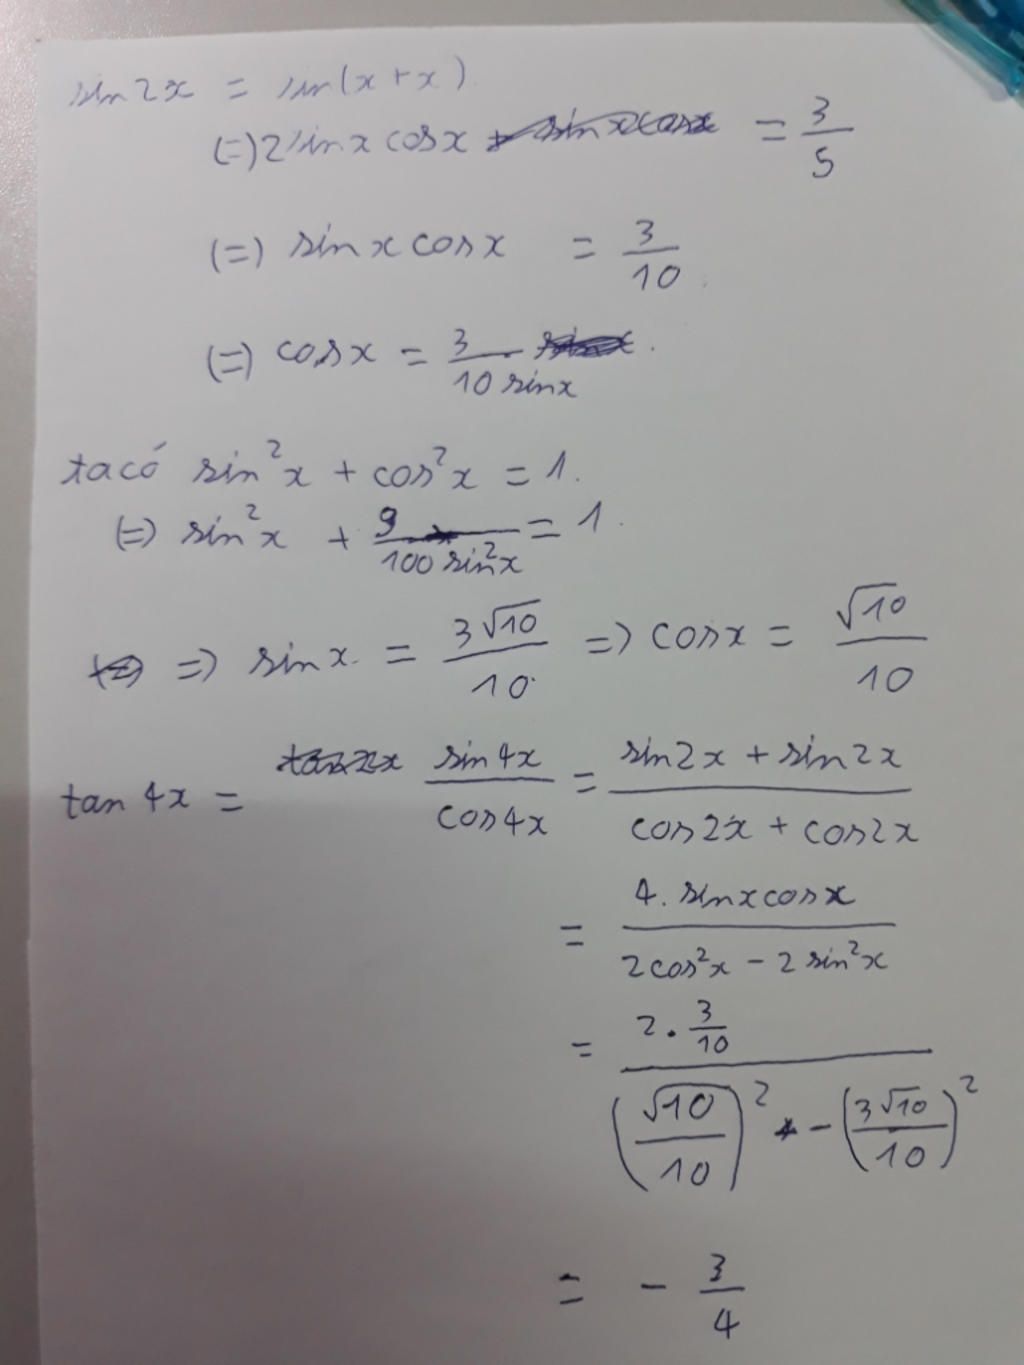 sin2x = sin(x+x)
(=) 2sinxcosx = 3/5
(=) sinxcosx = 3/10
(=) cosx = 3/(10 sinx)
ta có sin²x + cos²x = 1.
(=) sin²x + 9/(100 sin²x) = 1.
=) sinx = 3√10/10 =) cosx = √10/10
tan 4x = sin4x/cos4x = (sin2x + sin2x)/(cos2x + cos2x)
= (4. sinxcosx)/(2cos²x - 2sin²x)
= (2 . 3/10)/((√10/10)² - (3√10/10)²)
= - 3/4